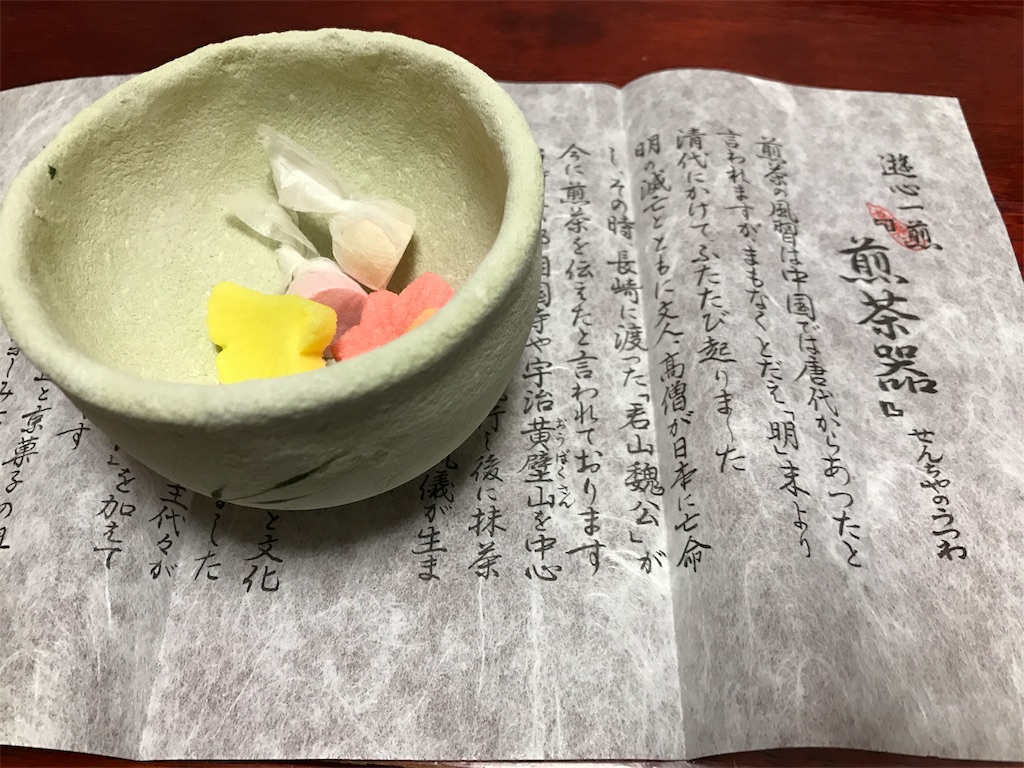 遊心一煎
『煎茶器』
せんちゃのうつわ
煎茶の風習は中国では唐代からあったと
言われますがまもなくとだえ「明」末より
清代にかけてふたたび起りました
明の滅亡とともに文人・高僧が日本に亡命
しその時長崎に渡った「若山魏公」が
今に煎茶を伝えたと言われております
国寺や宇治黄壁山を中心
おうばくさん
し後に抹茶
儀が生ま
と文化
した
主代々が
を加えて
す
と京菓子の